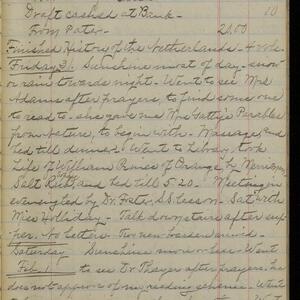 Draft cashed at Bank - 10
From Pater - 20.00
Finished History of the Netherlands - 4 vols.
Friday 31. Sunshine most of day - snow
or rain towards night. Went to see Mrs
Adams after prayers, to find some one
to read to - she gave me Mrs Gatty's Parables
from Nature, to begin with. Massage, and
bed till dinner. Went to Library, took
Life of William Prince of Orange, by
Salt Rub, and bed till 5.20. Meeting in
evening led by Dr. S.S. lesson. Sat with
Miss Holliday - Talk down stairs after sup-
per. No letter.
Saturday Sunshine more or less - Went
Feb. 1 to see Dr Thayer after prayers, he
does not approve of my reading scheme. Went